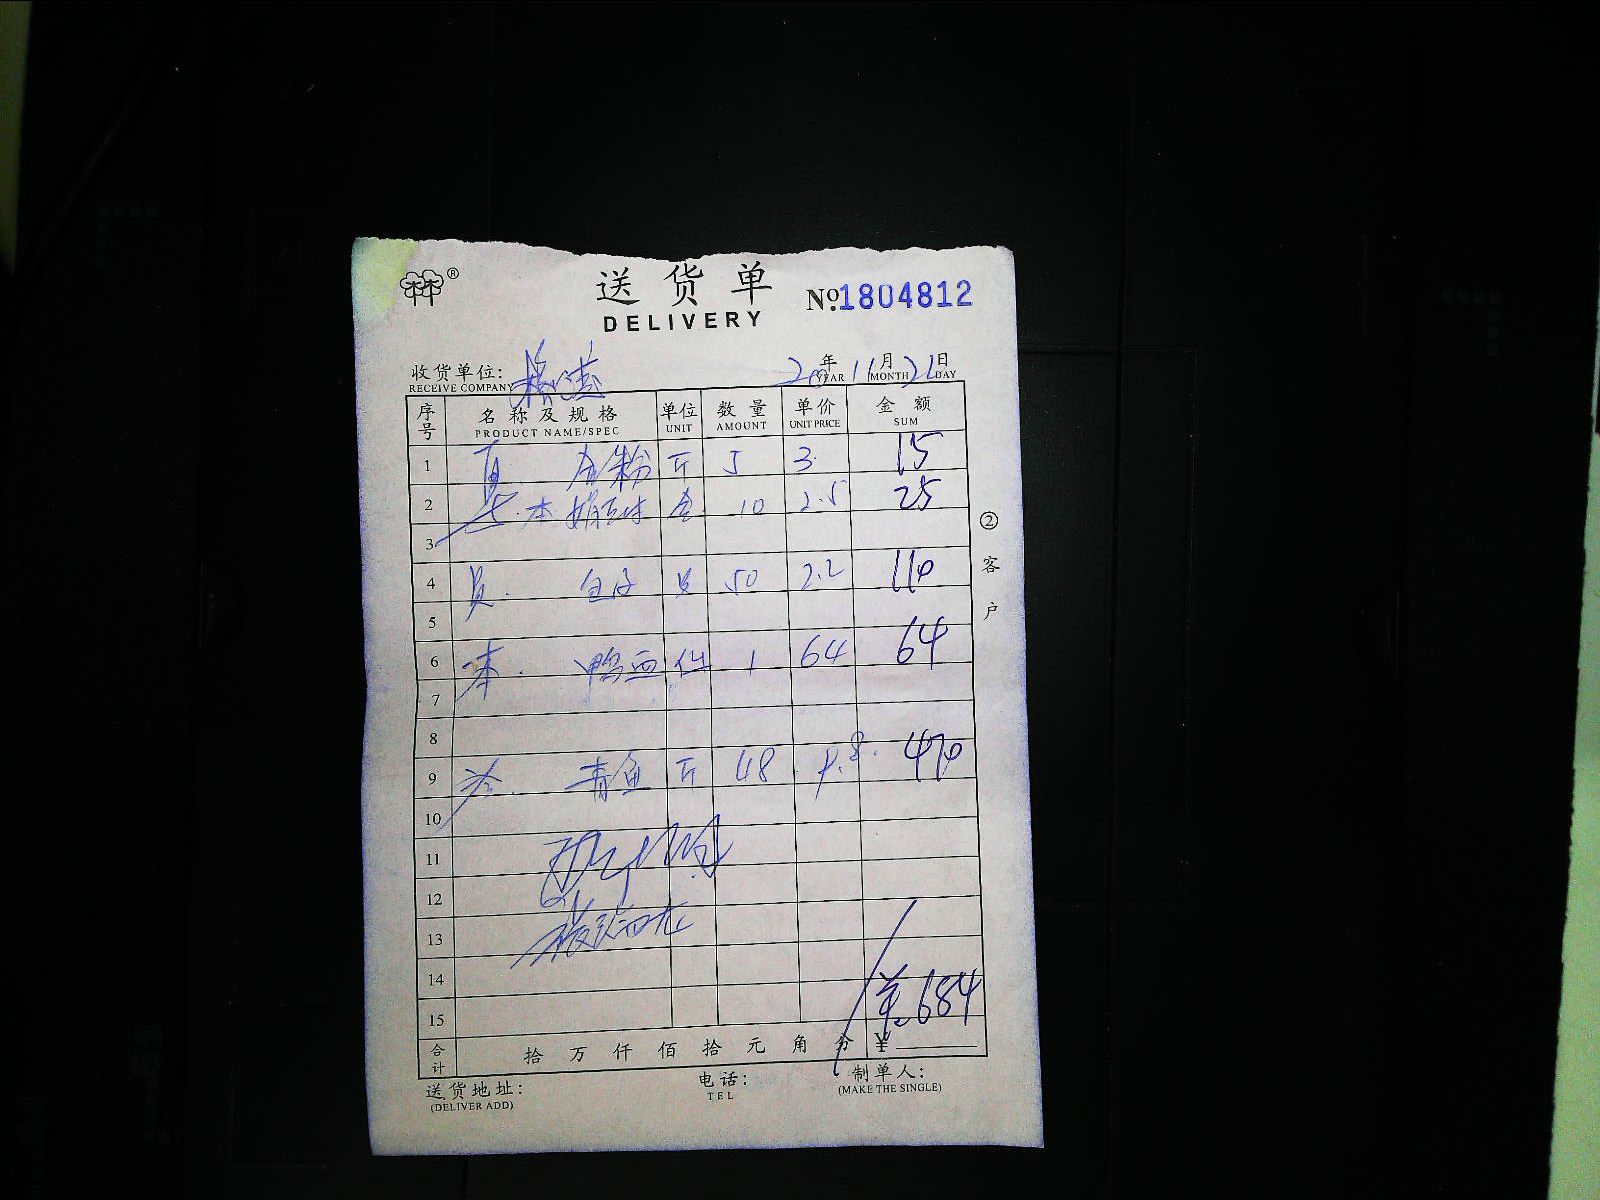 ®
送货单 №1804812
DELIVERY
收货单位: 20 年 11 月 21 日
RECEIVE COMPANY YEAR MONTH DAY
序号 名称及规格 单位 数量 单价 金额
PRODUCT NAME/SPEC UNIT AMOUNT UNIT PRICE SUM
1 粉 斤 5 3 15
2 本 10 2.5 25
3
② 客户
4 50 2.2 110
5
6 本. 鸭血 件 1 64 64
7
8
9 青鱼 斤 48 9.8. 470
10
11
12
13
14
15 684
合计 拾 万 仟 佰 拾 元 角 分 ¥
送货地址: 电话: 制单人:
(DELIVER ADD) TEL (MAKE THE SINGLE)